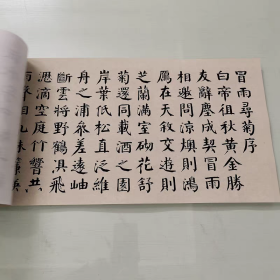 冒雨尋菊序
白帝徂秋黃金勝
友辭塵成契冒雨
相邀問涼燠則鴻
鴈在天敘交遊則
芝蘭滿室砌花舒
菊還同載酒之園
岸葉低松直泛維
舟之浦參差遠岫
斷雲將野鶴俱飛
滴空庭竹響共
相